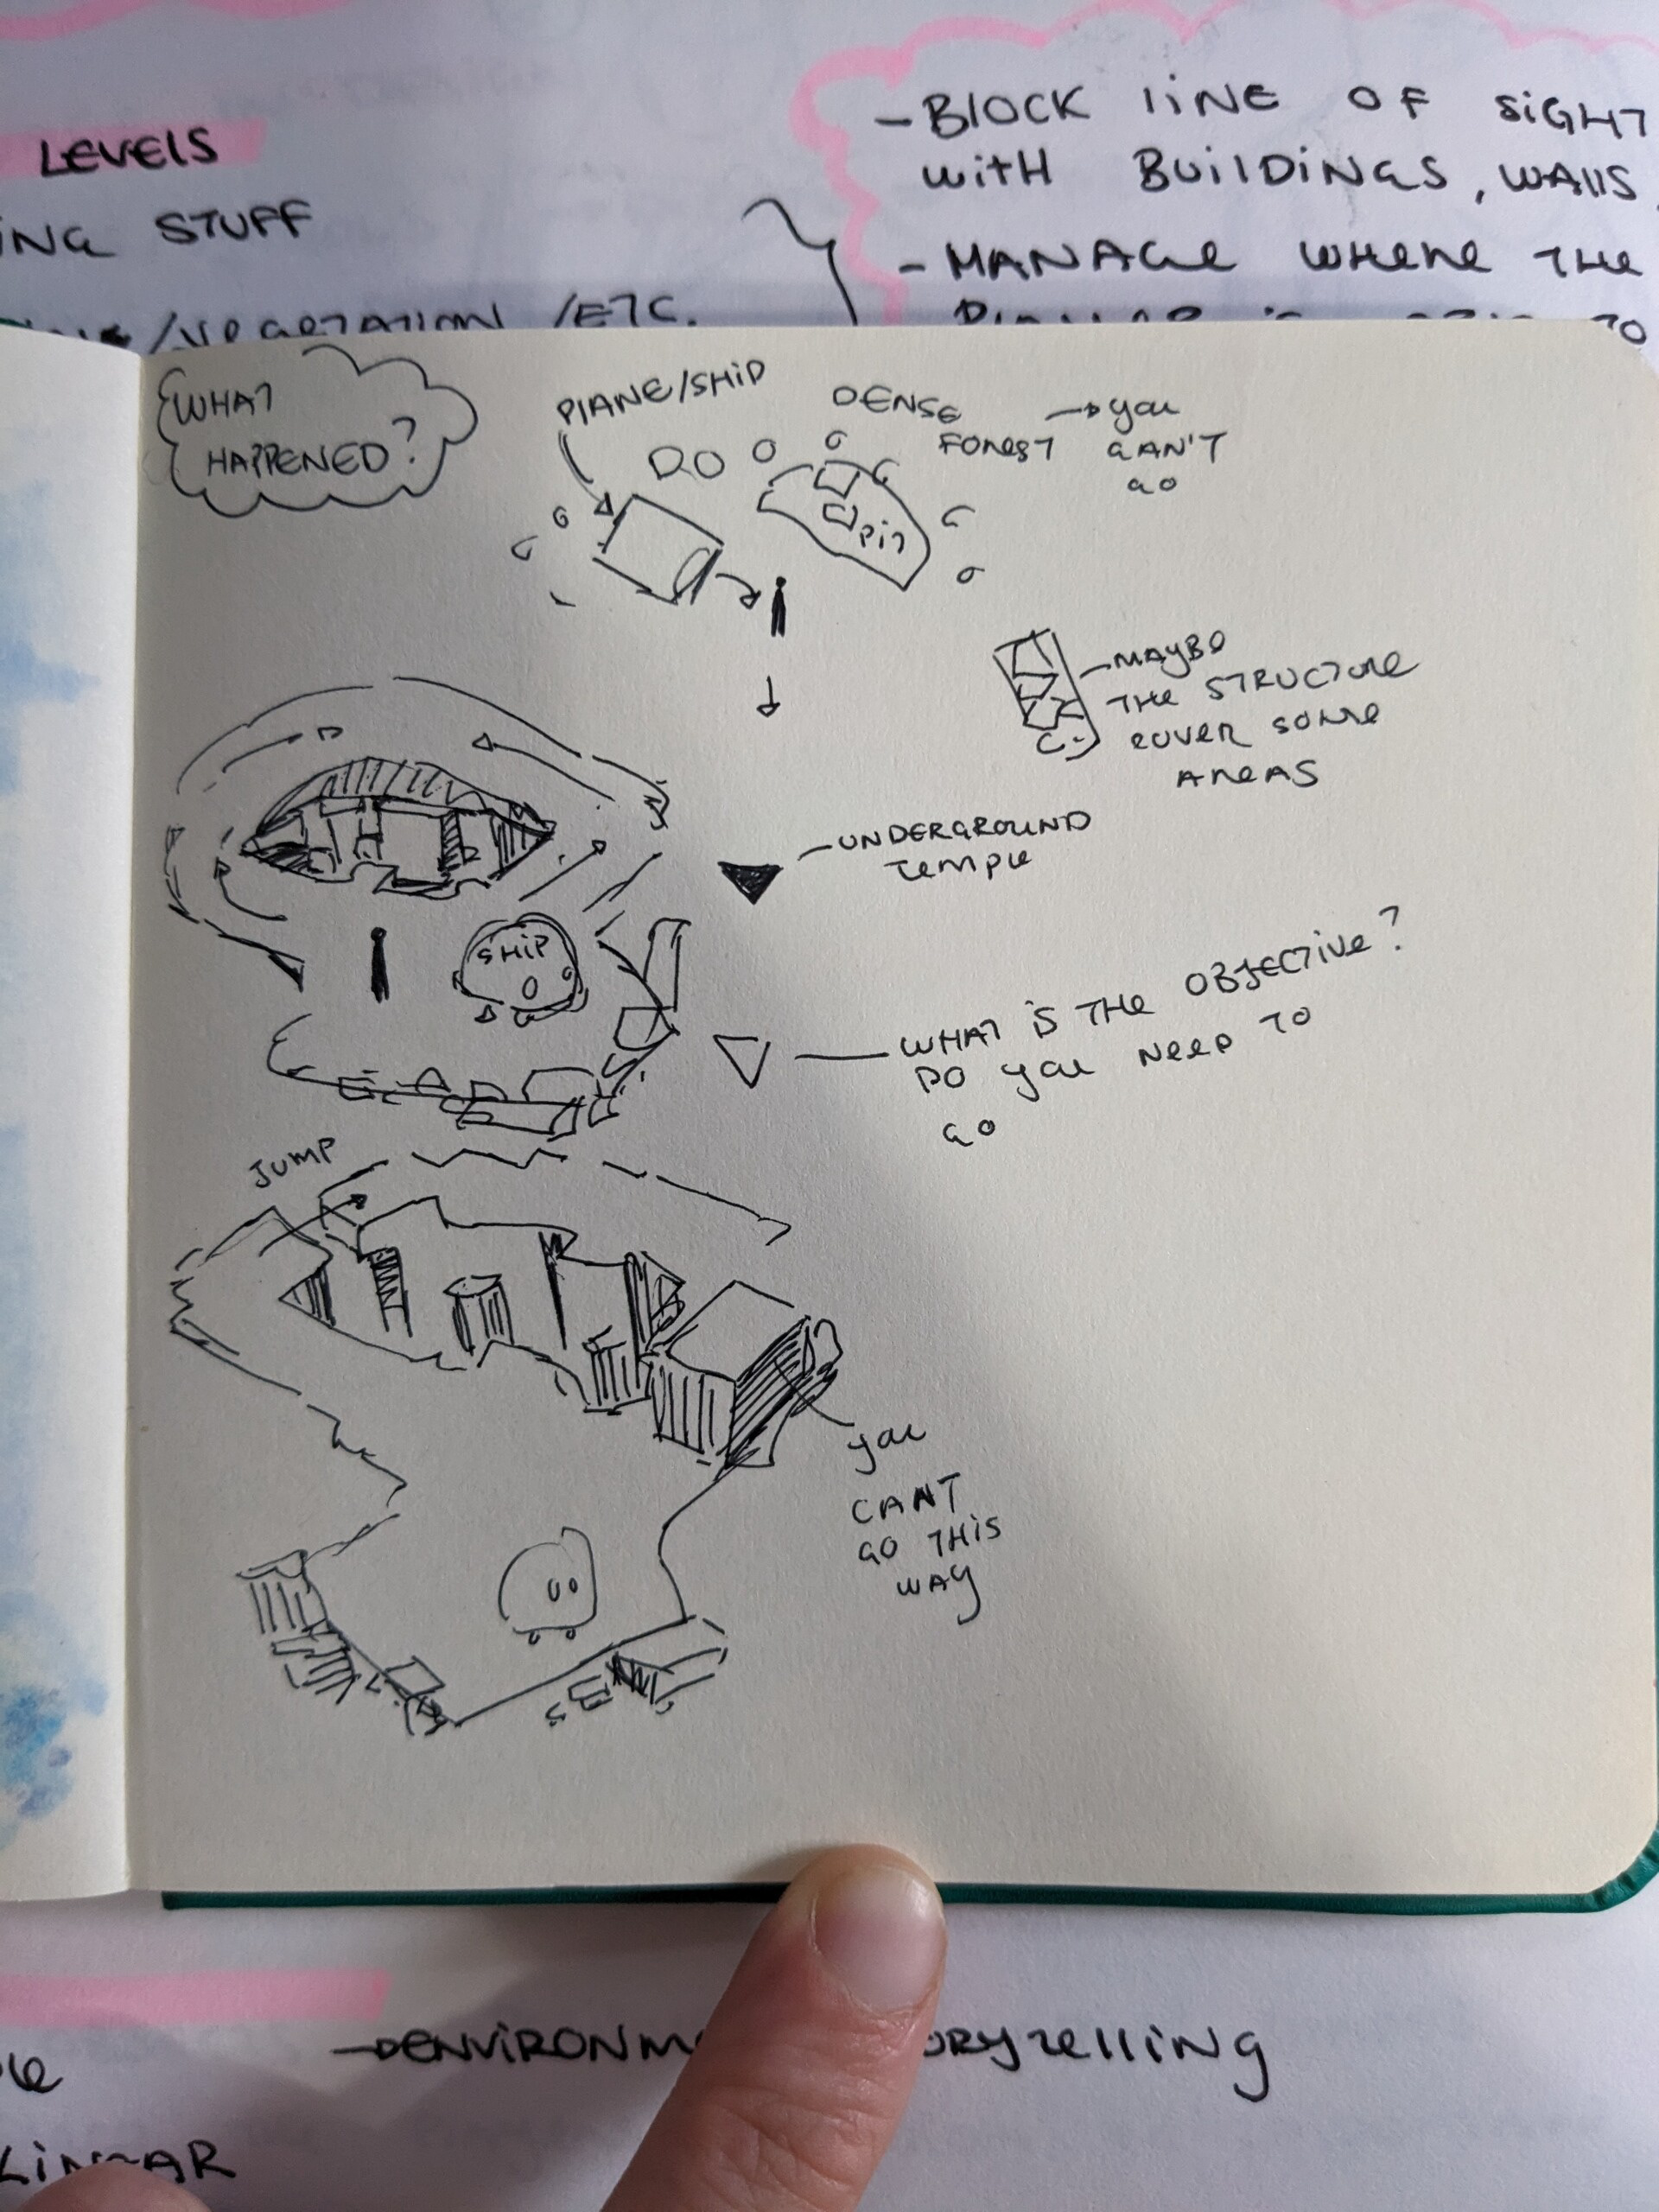 LEVELS
ING STUFF
/VEGETATION /ETC.
- BLOCK LINE OF SIGHT
WITH BUILDINGS, WALLS,
- MANAGE WHERE THE
TO
WHAT
HAPPENED?
PLANE/SHIP
DENSE
FOREST → YOU
CAN'T
GO
PIT
MAYBE
THE STRUCTURE
COVER SOME
AREAS
UNDERGROUND
TEMPLE
SHIP
WHAT IS THE OBJECTIVE?
DO YOU NEED TO
GO
JUMP
YOU
CANT
GO THIS
WAY
LINEAR